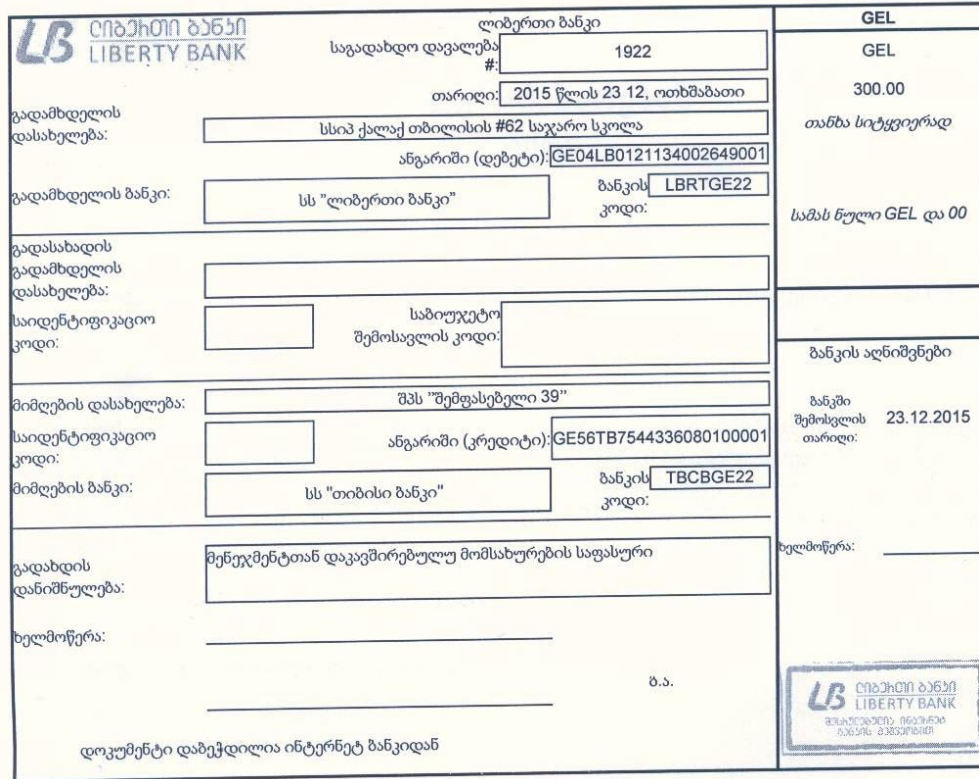 ლიბერთი ბანკი
LIBERTY BANK
ლიბერთი ბანკი
საგადახდო დავალება #: 1922
თარიღი: 2015 წლის 23 12, ოთხშაბათი
გადამხდელის დასახელება: სსიპ ქალაქ თბილისის #62 საჯარო სკოლა
ანგარიში (დებეტი): GE04LB0121134002649001
გადამხდელის ბანკი: სს "ლიბერთი ბანკი"
ბანკის კოდი: LBRTGE22
გადასახადის გადამხდელის დასახელება:
საიდენტიფიკაციო კოდი:
საბიუჯეტო შემოსავლის კოდი:
მიმღების დასახელება: შპს "შემფასებელი 39"
საიდენტიფიკაციო კოდი:
ანგარიში (კრედიტი): GE56TB7544336080100001
მიმღების ბანკი: სს "თიბისი ბანკი"
ბანკის კოდი: TBCBGE22
გადახდის დანიშნულება: მენეჯმენტთან დაკავშირებულუ მომსახურების საფასური
ხელმოწერა:
ბ.ა.
დოკუმენტი დაბეჭდილია ინტერნეტ ბანკიდან
GEL
GEL
300.00
თანხა სიტყვიერად
სამას ნული GEL და 00
ბანკის აღნიშვნები
ბანკში შემოსვლის თარიღი: 23.12.2015
ხელმოწერა:
ლიბერთი ბანკი
LIBERTY BANK
შესრულებულია ინტერნეტ
ბანკის მეშვეობით